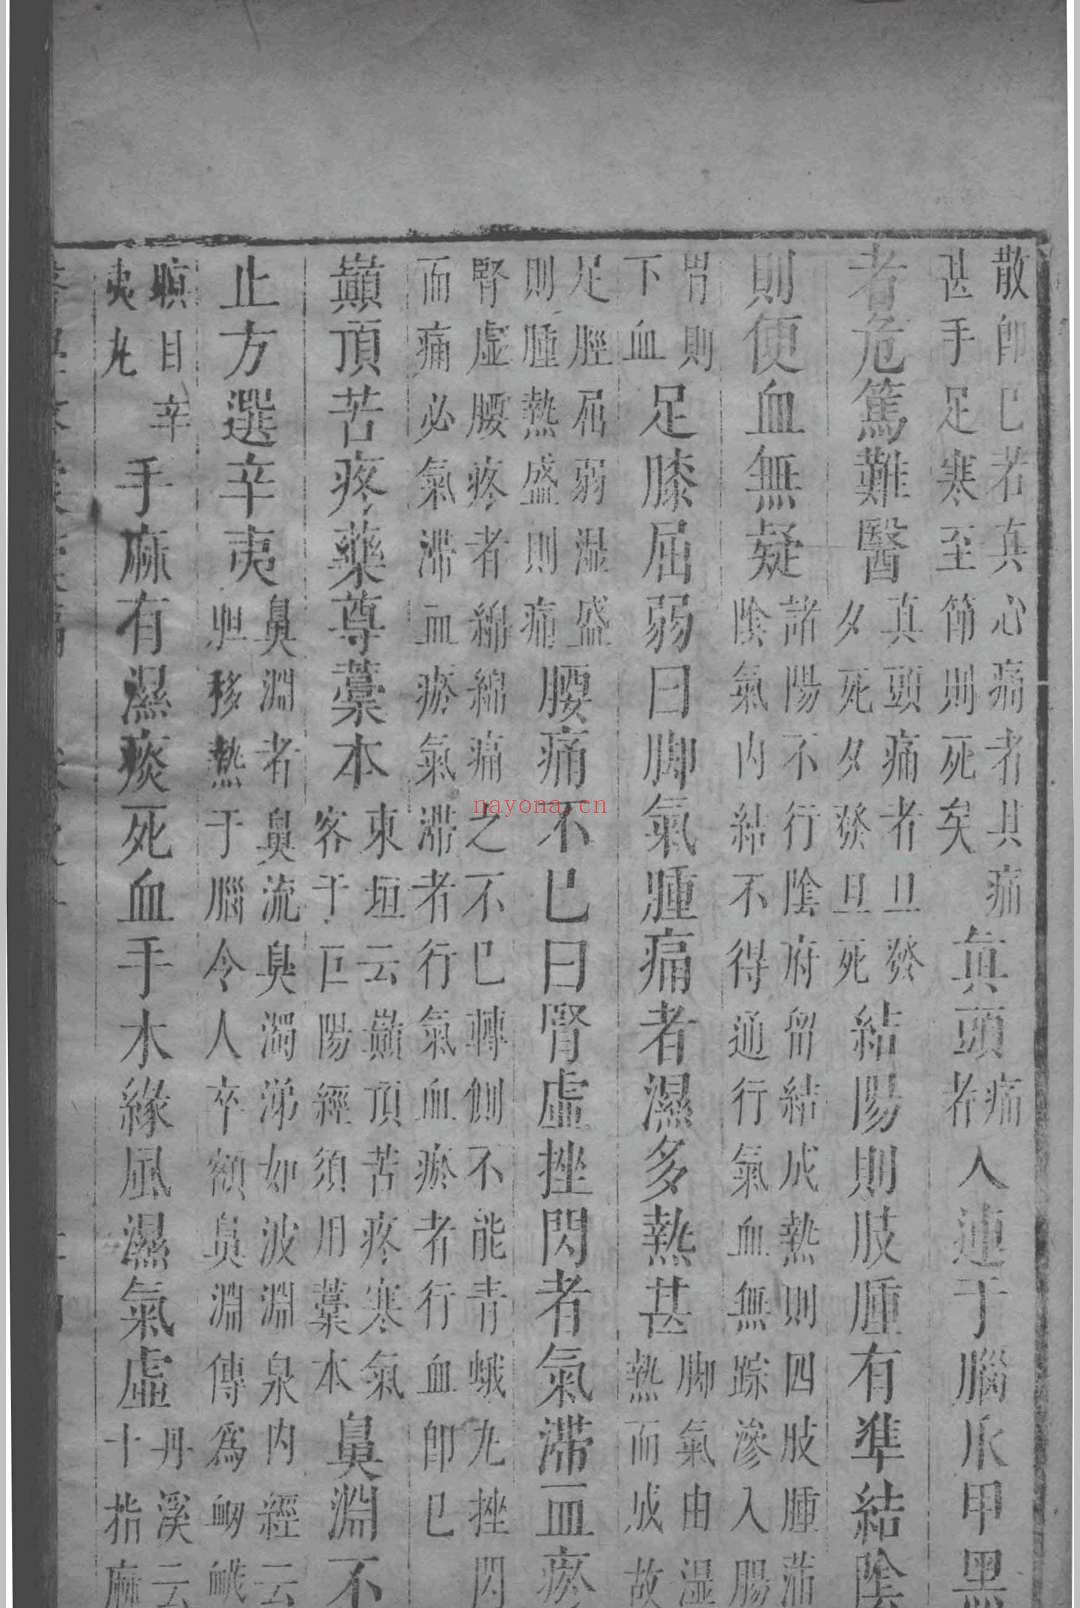 散卽已若真心痛者其痛
甚手足寒至節則死矣
真頭痛者
入連于腦爪甲黑
者危篤難醫
真頭痛者旦發
夕死夕發旦死
結陽則肢腫有準結陰
則便血無疑
諸陽不行陰府留結成熱則四肢腫
陰氣內結不得通行氣血無踪滲入腸
胃則
下血
足膝屈弱曰脚氣腫痛者濕多熱甚
脚氣由湿
熱而成故
足脛屈弱湿盛
則腫熱盛則痛
腰痛不已曰腎虛挫閃者氣滯血瘀
腎虛腰疼者綿綿痛之不已轉側不能青蛾丸挫閃
而痛必氣滯血瘀氣滯者行氣血瘀者行血卽已
巔頂苦疼藥尊藁本
東垣云巔頂苦疼寒氣
客于巨陽經須用藁本
鼻淵不
止方選辛夷
鼻淵者鼻流臭濁涕如波淵泉內經云
胆移熱于腦令人卒額鼻淵傳為衂衊
瞑目辛
夷丸
手麻有濕痰死血手木緣風濕氣虛
丹溪云
十指麻
nayona.cn